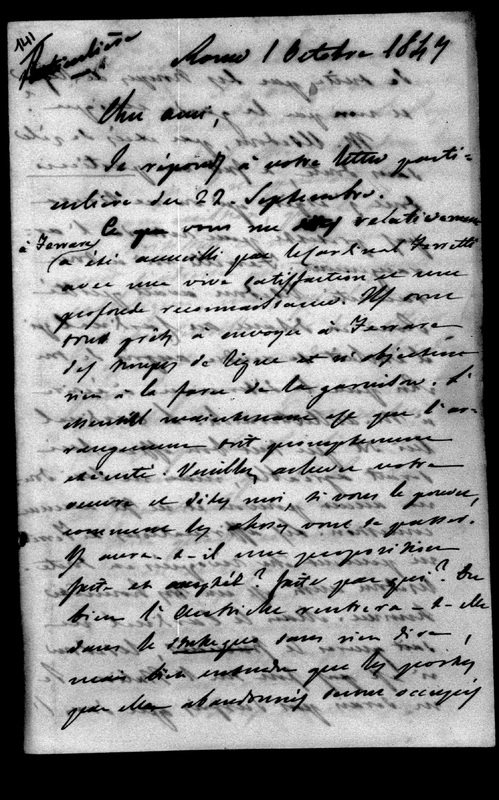 141
Particulière
Rome 1 Octobre 1847
Cher ami,
Je réponds à votre lettre parti-
culière du 22 Septembre.
Ce que vous me relativement
à Ferrare
a été accueilli par le Cardinal Ferretti
avec une vive satisfaction et une
profonde reconnaissance. Ils sont
tout prêts à envoyer à Ferrare
des troupes de ligne et n'objectent
rien à la force de la garnison. L'
essentiel maintenant est que l'ar-
rangement soit promptement
exécuté. Veuillez achever votre
oeuvre et dites moi, si vous le pouvez,
comment les choses vont se passer.
Y aura-t-il une proposition
faite et acceptée? faite par qui? Ou
bien l'Autriche rentrera-t-elle
dans le statu quo sans rien dire,
mais bien entendu que les postes
par elle abandonnés seront occupés